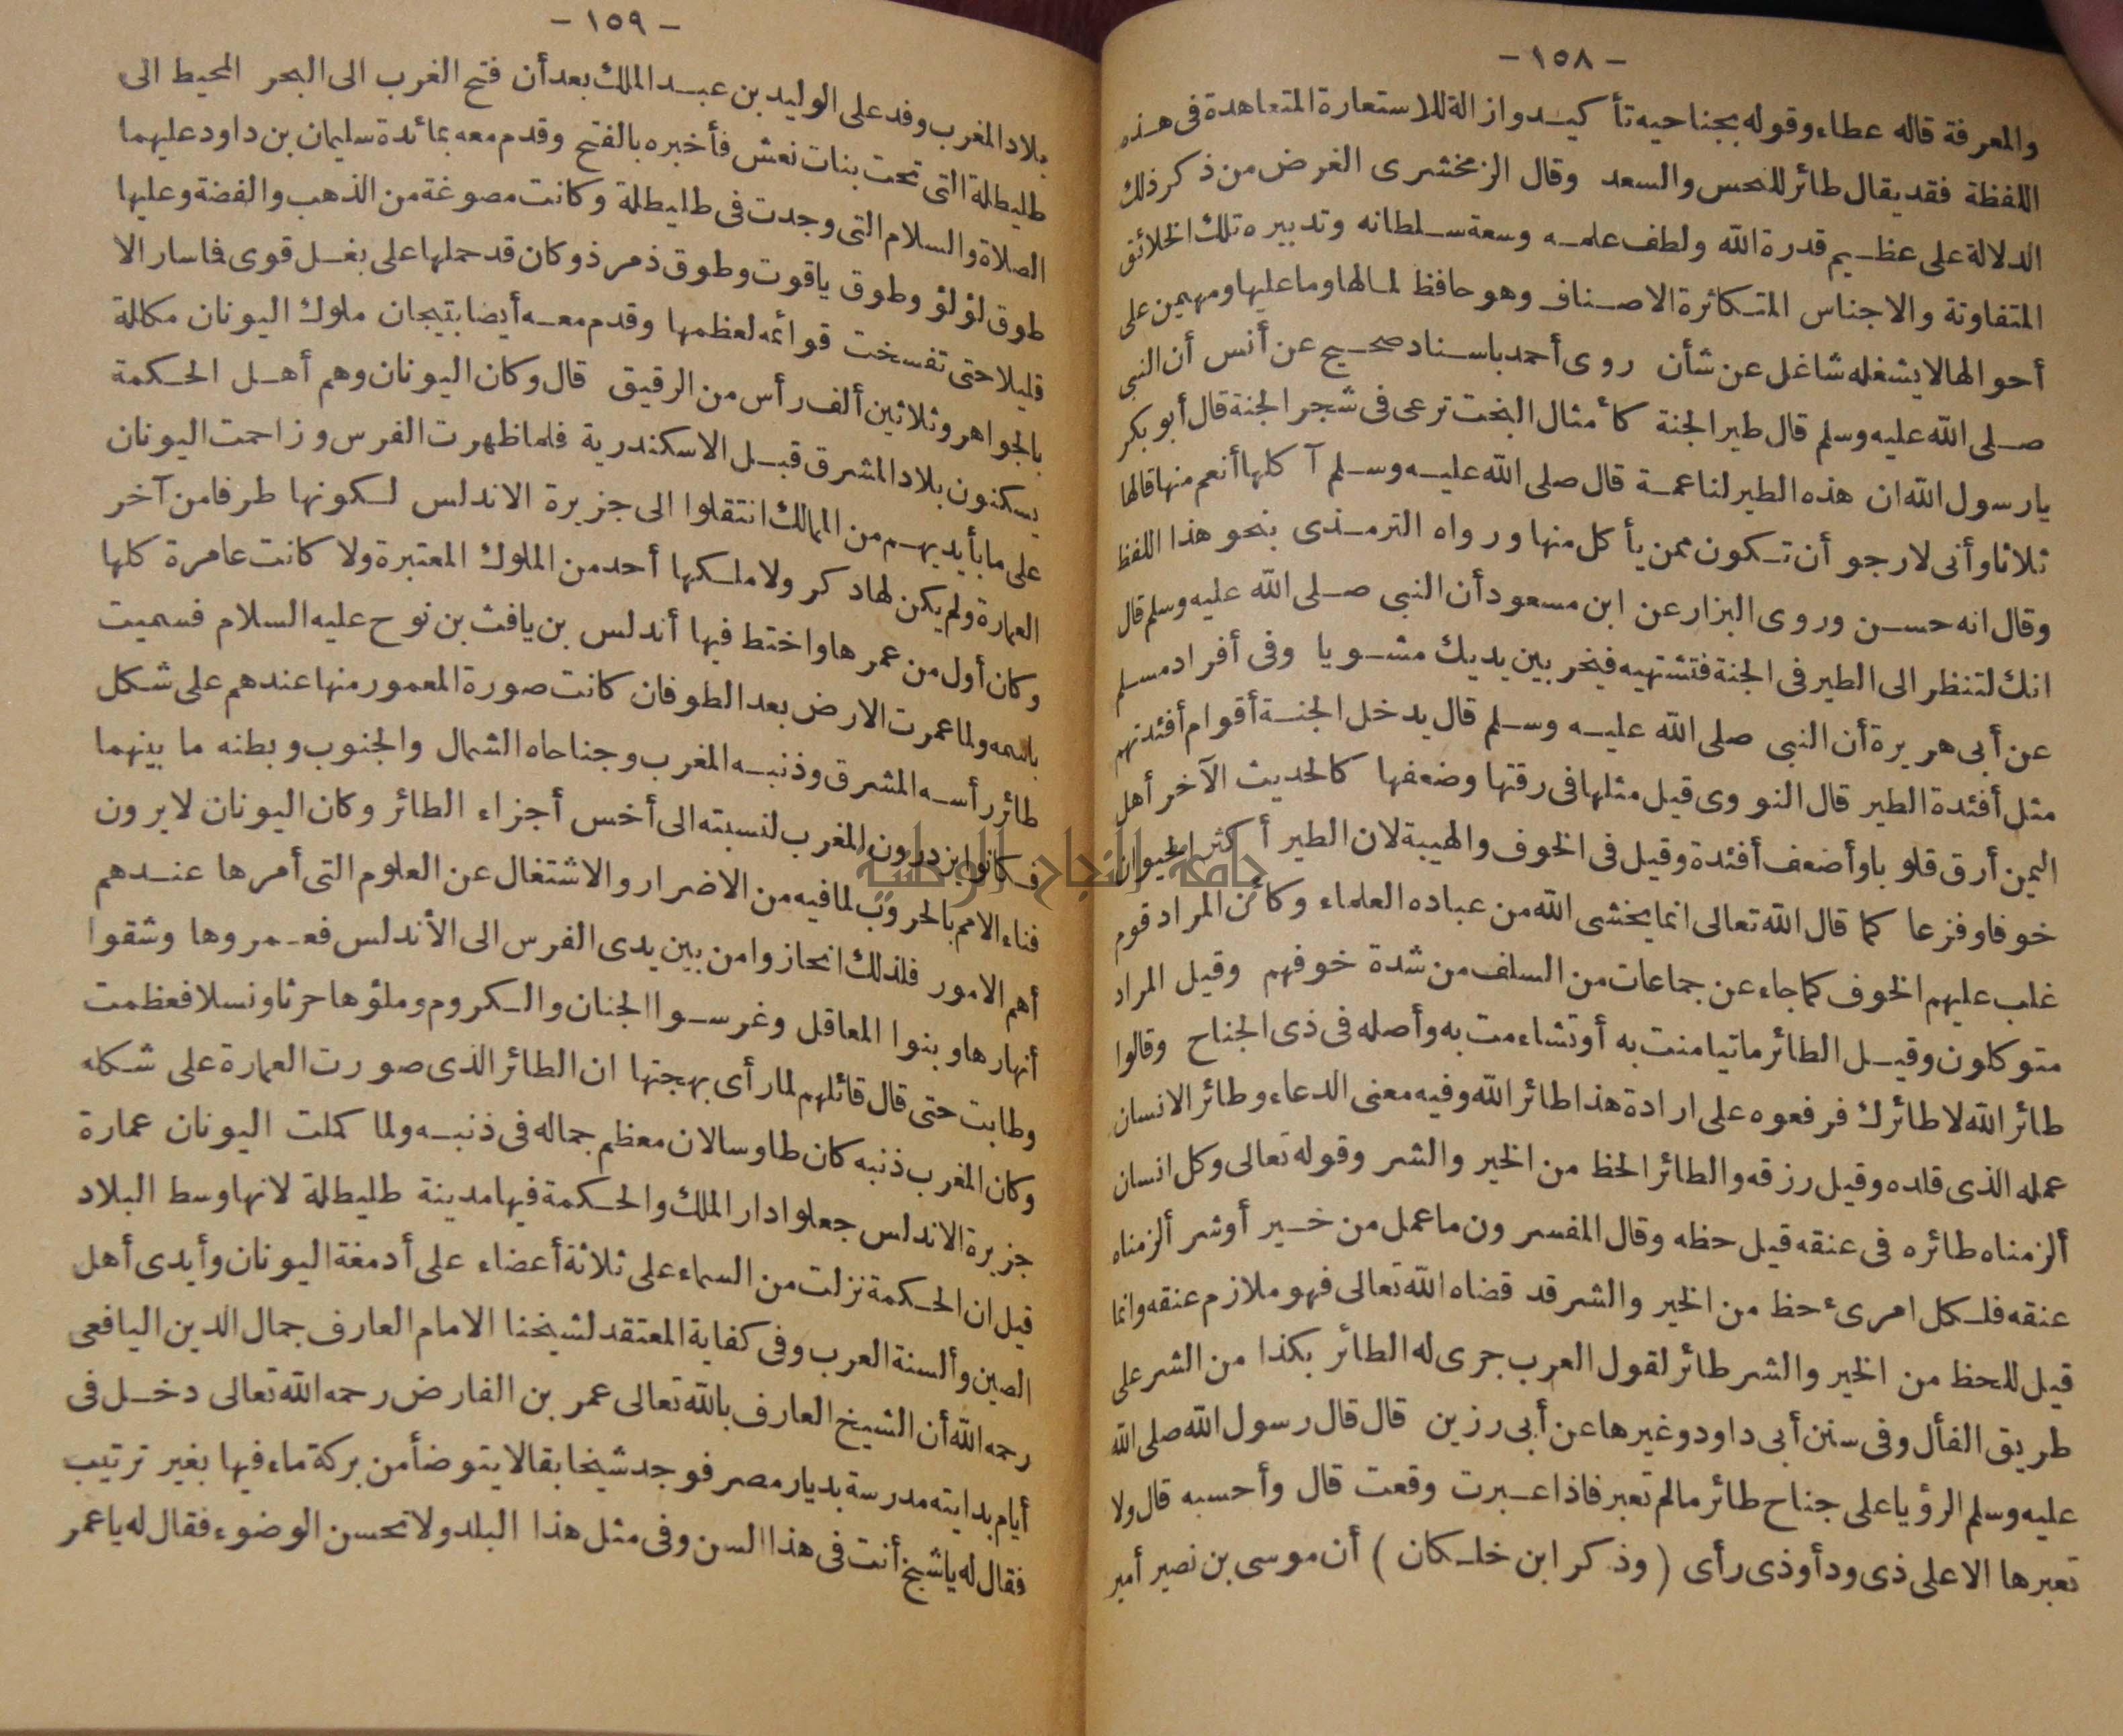 - ١٥٨ -
والمعرفة قاله عطاء وقوله بجناحيه تأكيد وازالة للاستعارة المتعاهدة فى هذه
اللفظة فقد يقال طائر للنحس والسعد وقال الزمخشرى الغرض من ذكر ذلك
الدلالة على عظيم قدرة الله ولطف علمه وسعة سلطانه وتدبيره تلك الخلائق
المتفاوتة والاجناس المتكاثرة الاصناف وهو حافظ لمالها وماعليها ومهيمن على
أحوالها لا يشغله شاغل عن شأن روى أحمد باسناد صحيح عن أنس أن النبى
صلى الله عليه وسلم قال طير الجنة كأمثال البخت ترعى فى شجر الجنة قال أبو بكر
يارسول الله ان هذه الطير لناعمة قال صلى الله عليه وسلم آكلها أنعم منها قالها
ثلاثا وأنى لارجو أن تكون ممن يأكل منها ورواه الترمذى بنحو هذا اللفظ
وقال انه حسن وروى البزار عن ابن مسعود أن النبى صلى الله عليه وسلم قال
انك لتنظر الى الطير فى الجنة فتشتهيه فيخر بين يديك مشويا وفى أفراد مسلم
عن أبى هريرة أن النبى صلى الله عليه وسلم قال يدخل الجنة أقوام أفئدتهم
مثل أفئدة الطير قال النووى قيل مثلها فى رقتها وضعفها كالحديث الآخر أهل
اليمن أرق قلوبا وأضعف أفئدة وقيل فى الخوف والهيبة لان الطير أكثر الحيوان
خوفا وفزعا كما قال الله تعالى انما يخشى الله من عباده العلماء وكأن المراد قوم
غلب عليهم الخوف كما جاء عن جماعات من السلف من شدة خوفهم وقيل المراد
متوكلون وقيل الطائر ما تيامنت به أو تشاءمت به وأصله فى ذى الجناح وقالوا
طائر الله لا طائرك فرفعوه على ارادة هذا طائر الله وفيه معنى الدعاء وطائر الانسان
عمله الذى قلده وقيل رزقه والطائر الحظ من الخير والشر وقوله تعالى وكل انسان
ألزمناه طائره فى عنقه قيل حظه وقال المفسرون ما عمل من خير أو شر ألزمناه
عنقه فلكل امرئ حظ من الخير والشر قد قضاه الله تعالى فهو ملازم عنقه وانما
قيل للحظ من الخير والشر طائر لقول العرب جرى له الطائر بكذا من الشر على
طريق الفأل وفى سنن أبى داود وغيرها عن أبى رزين قال قال رسول الله صلى الله
عليه وسلم الرؤيا على جناح طائر مالم تعبر فاذا عبرت وقعت قال وأحسبه قال ولا
تعبرها الا على ذى ود أو ذى رأى ( وذكر ابن خلكان ) أن موسى بن نصير أمير
- ١٥٩ -
بلاد المغرب وفد على الوليد بن عبد الملك بعد أن فتح الغرب الى البحر المحيط الى
طليطلة التى تحت بنات نعش فأخبره بالفتح وقدم معه بمائدة سليمان بن داود عليهما
الصلاة والسلام التى وجدت فى طليطلة وكانت مصوغة من الذهب والفضة وعليها
طوق لؤلؤ وطوق ياقوت وطوق ذمرذ وكان قد حملها على بغل قوى فاسار الا
قليلا حتى تفسخت قوائمه لعظمها وقدم معه أيضا بتيجان ملوك اليونان مكللة
بالجواهر وثلاثين ألف رأس من الرقيق قال وكان اليونان وهم أهل الحكمة
يسكنون بلاد المشرق قبل الاسكندرية فلما ظهرت الفرس وزاحمت اليونان
على ما بأيديهم من الممالك انتقلوا الى جزيرة الاندلس لكونها طرفا من آخر
العمارة ولم يكن لها ذكر ولا ملكها أحد من الملوك المعتبرة ولا كانت عامرة كلها
وكان أول من عمرها واختط فيها أندلس بن يافث بن نوح عليه السلام فسميت
باسمه ولما عمرت الارض بعد الطوفان كانت صورة المعمور منها عندهم على شكل
طائر رأسه المشرق وذنبه المغرب وجناحاه الشمال والجنوب وبطنه ما بينهما
فكانوا يزدرون المغرب لنسبته الى أخس أجزاء الطائر وكان اليونان لا يرون
فناء الامم بالحروب لما فيه من الاضرار والاشتغال عن العلوم التى أمرها عندهم
أهم الامور فلذلك انحازوا من بين يدى الفرس الى الأندلس فعمروها وشقوا
أنهارها وبنوا المعاقل وغرسوا الجنان والكروم وملؤها حرثا ونسلا فعظمت
وطابت حتى قال قائلهم لما رأى بهجتها ان الطائر الذى صورت العمارة على شكله
وكان المغرب ذنبه كان طاوسا لان معظم جماله فى ذنبه ولما كملت اليونان عمارة
جزيرة الاندلس جعلوا دار الملك والحكمة فيها مدينة طليطلة لانها وسط البلاد
قيل ان الحكمة نزلت من السماء على ثلاثة أعضاء على أدمغة اليونان وأيدى أهل
الصين وألسنة العرب وفى كفاية المعتقد لشيخنا الامام العارف جمال الدين اليافعى
رحمه الله أن الشيخ العارف بالله تعالى عمر بن الفارض رحمه الله تعالى دخل فى
أيام بدايته مدرسة بديار مصر فوجد شيخا بقالا يتوضأ من بركة ماء فيها بغير ترتيب
فقال له ياشيخ أنت فى هذا السن وفى مثل هذا البلد ولا تحسن الوضوء فقال له ياعمر
جامعة النجاح الوطنية